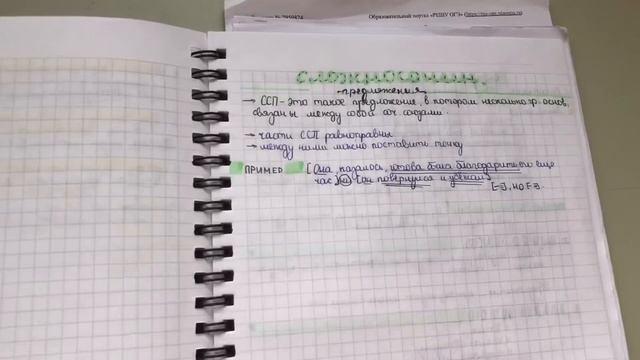 Образовательный портал «РЕШУ ОГЭ»
предложения
→ ССП - это такое предложение, в котором несколько гр. основ,
связаны между собой соч. союзами.
→ части ССП равноправны
→ между ними можно поставить точку
ПРИМЕР [Она, казалось, готова была благодарить его ещё
час], но [он повернулся и
[-=], но [-=].